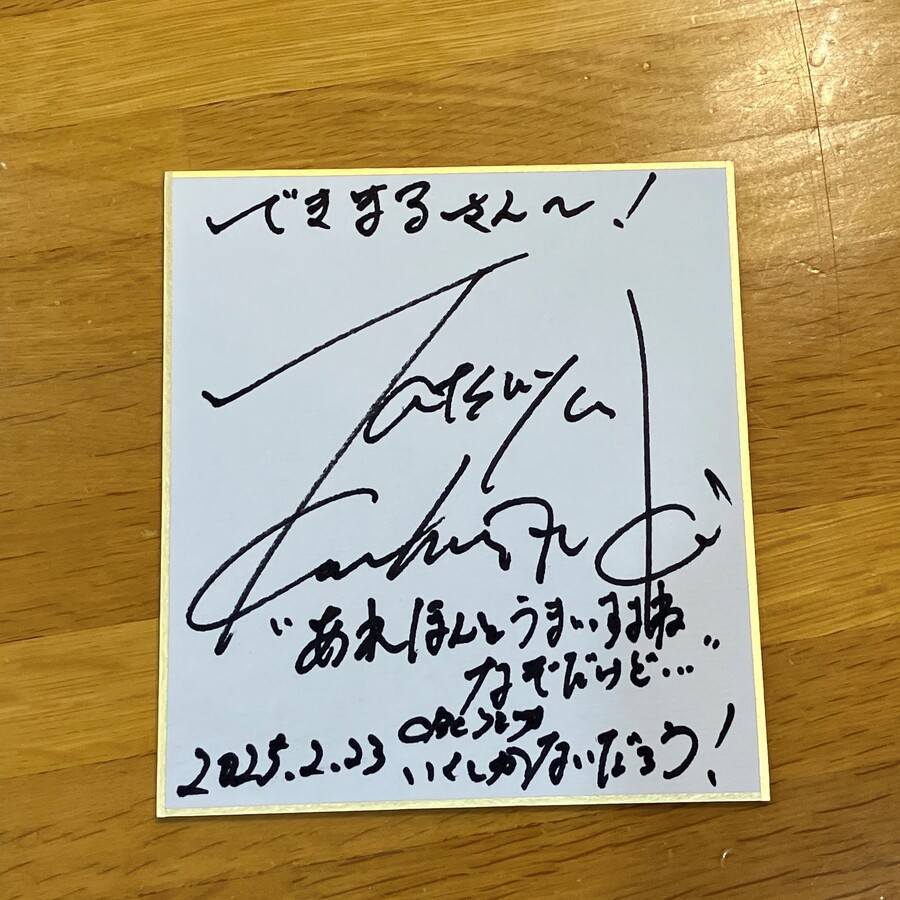 できまるさん〜!
Tatsuya
"あれほんとうまいすよね
なぞだけど…"
2025.2.23 いくしかないだろう!